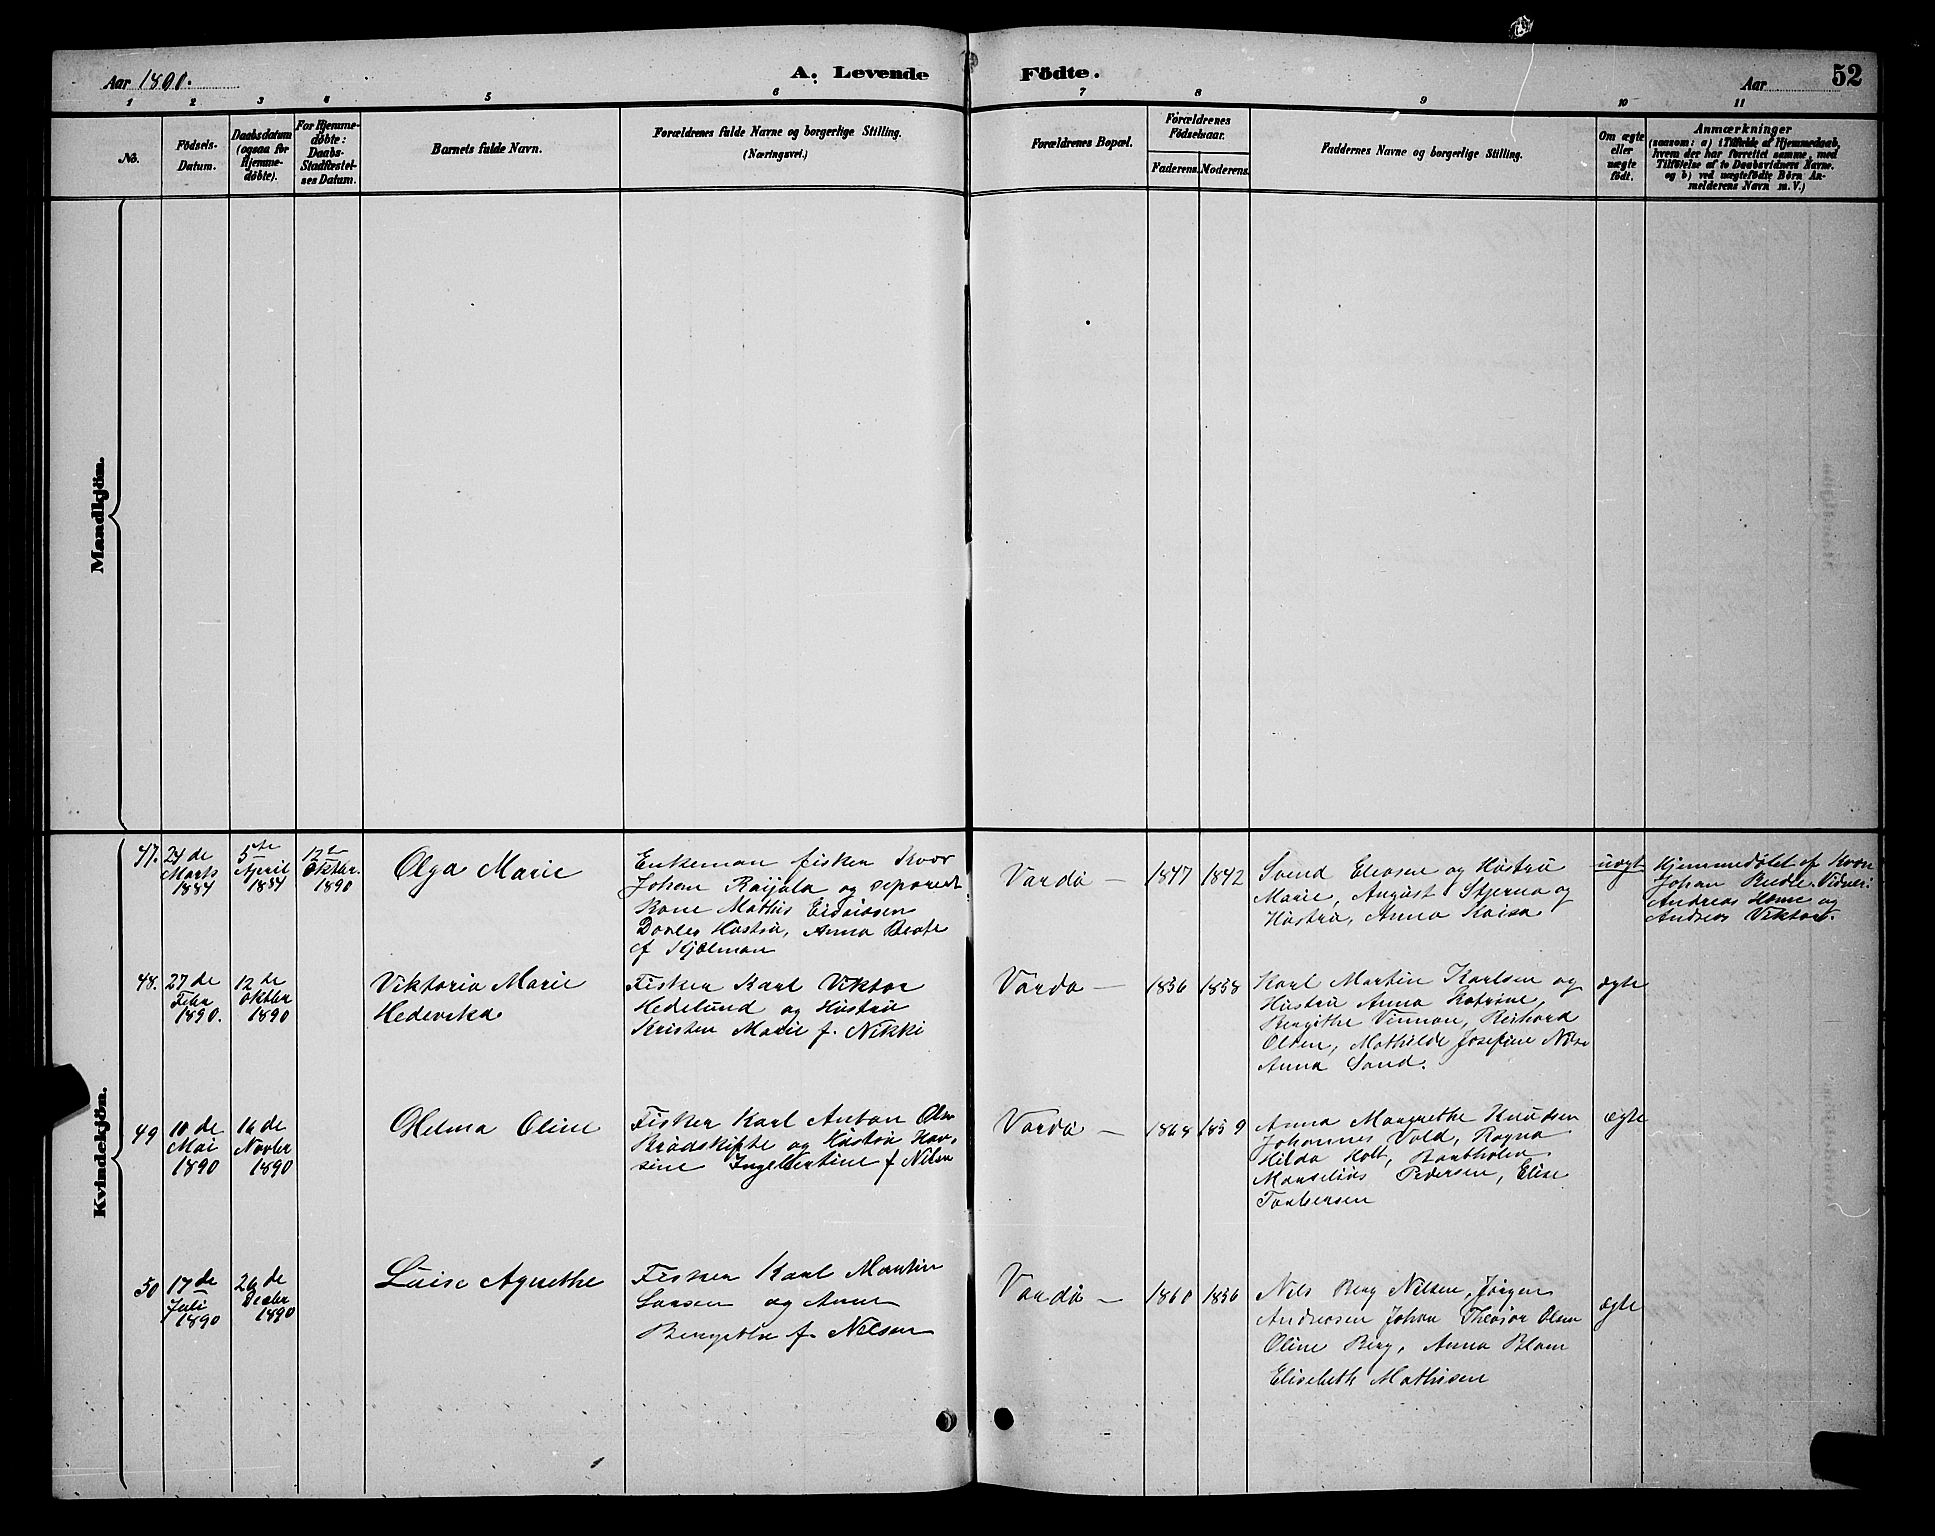 Aar 1890.
A. Levende Födte.
Aar
52
1
2
3
4
5
6
7
8
9
10
11
No.
Födsels-
Datum.
Daabsdatum
(ogsaa for
Hjemme-
døbte).
For Hjemme-
døbte:
Daabs-
Stadfæstel-
ses Datum.
Barnets fulde Navn.
Forældrenes fulde Navne og borgerlige Stilling.
(Næringsvei.)
Forældrenes Bopæl.
Forældrenes
Födselsaar.
Faderens.
Moderens.
Faddernes Navne og borgerlige Stilling.
Om ægte
eller
uægte
födt.
Anmærkninger
(saasom: a) i Tilfælde af Hjemmedaab,
hvem der har forrettet samme, med
Tilföielse af to Daabsvidners Navne.
og b) ved uægtefödte Börn An-
melderens Navn m. V.)
Mandkjön.
Kvindekjön.
47.
24 de
Marts
1884
5te
April
1884
12te
Oktbr.
1890
Olga Marie
Enkeman fisker Kvæn
Johan Raijala og separert
Kone Mathis
Hustru, Anna Beate
f Kjelman
Vardø —
1847
1842
Svend Eliasen og Hustru
Marie, August Stjerna og
Hustru, Anna Kaisa
uægt
Hjemmedøbt af Kvæn
Johan Vidner:
Andreas og
Andreas Viktor.
48.
27 de
Febr
1890.
12 de
Oktbr
1890
Viktoria Marie
Hedevika
Fisker Karl Viktor
Hedelund og Hustru
Kristen Marie f. Nikki
Vardø —
1856
1858
Karl Martin Karlsen og
Hustru Anna Katrine,
Bergithe Vinnan, Rikhard
Olsen, Mathilde Josefine
Anna Sand.
ægte
49
10 de
Mai
1890
16 de
Novbr
1890
Helma Oline
Fisker Karl Anton Olsen
Brødskifte og Hustru Han-
sine Ingebertine f Nilsen
Vardø —
1864
1859
Anna Margrethe Knudsen
Johannes Vold, Ragna
Hilda Holt, Bartholen
Marselius Pedersen, Elise
Torbersen
ægte
50
17 de
Juli
1890
26 de
Decbr
1890
Luise Agnethe
Fisker Karl Martin
Larsen og Anne
Bergethe f. Nilsen
Vardø —
1860
1856
Nils Berg Nilsen, Jørgen
Andreasen Johan Theodor Olsen
Oline Berg, Anna Blom
Elisabeth Mathisen
ægte